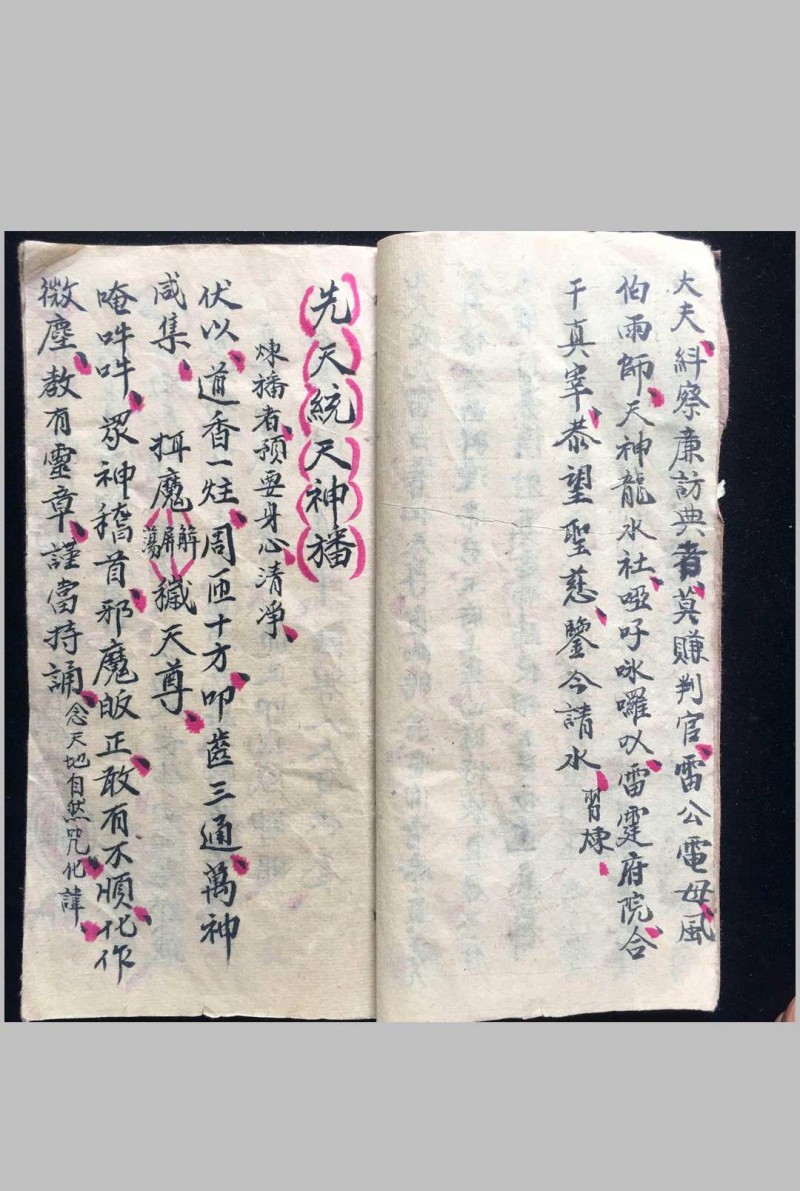 大夫糾察廉訪典者莫賺判官雷公電母風
伯雨師天神龍水社啞吇咏囉以雷霆府院合
干真宰恭望聖慈鑒今請水習煉
先天統天神播
煉播者預要身心清凈
伏以道香一炷周匝十方叩齒三通萬神
咸集 揖魔蕩屏解穢天尊
唵吽吽眾神稽首邪魔皈正敢有不順化作
微塵教有靈章謹當持誦念天地自然咒化諱